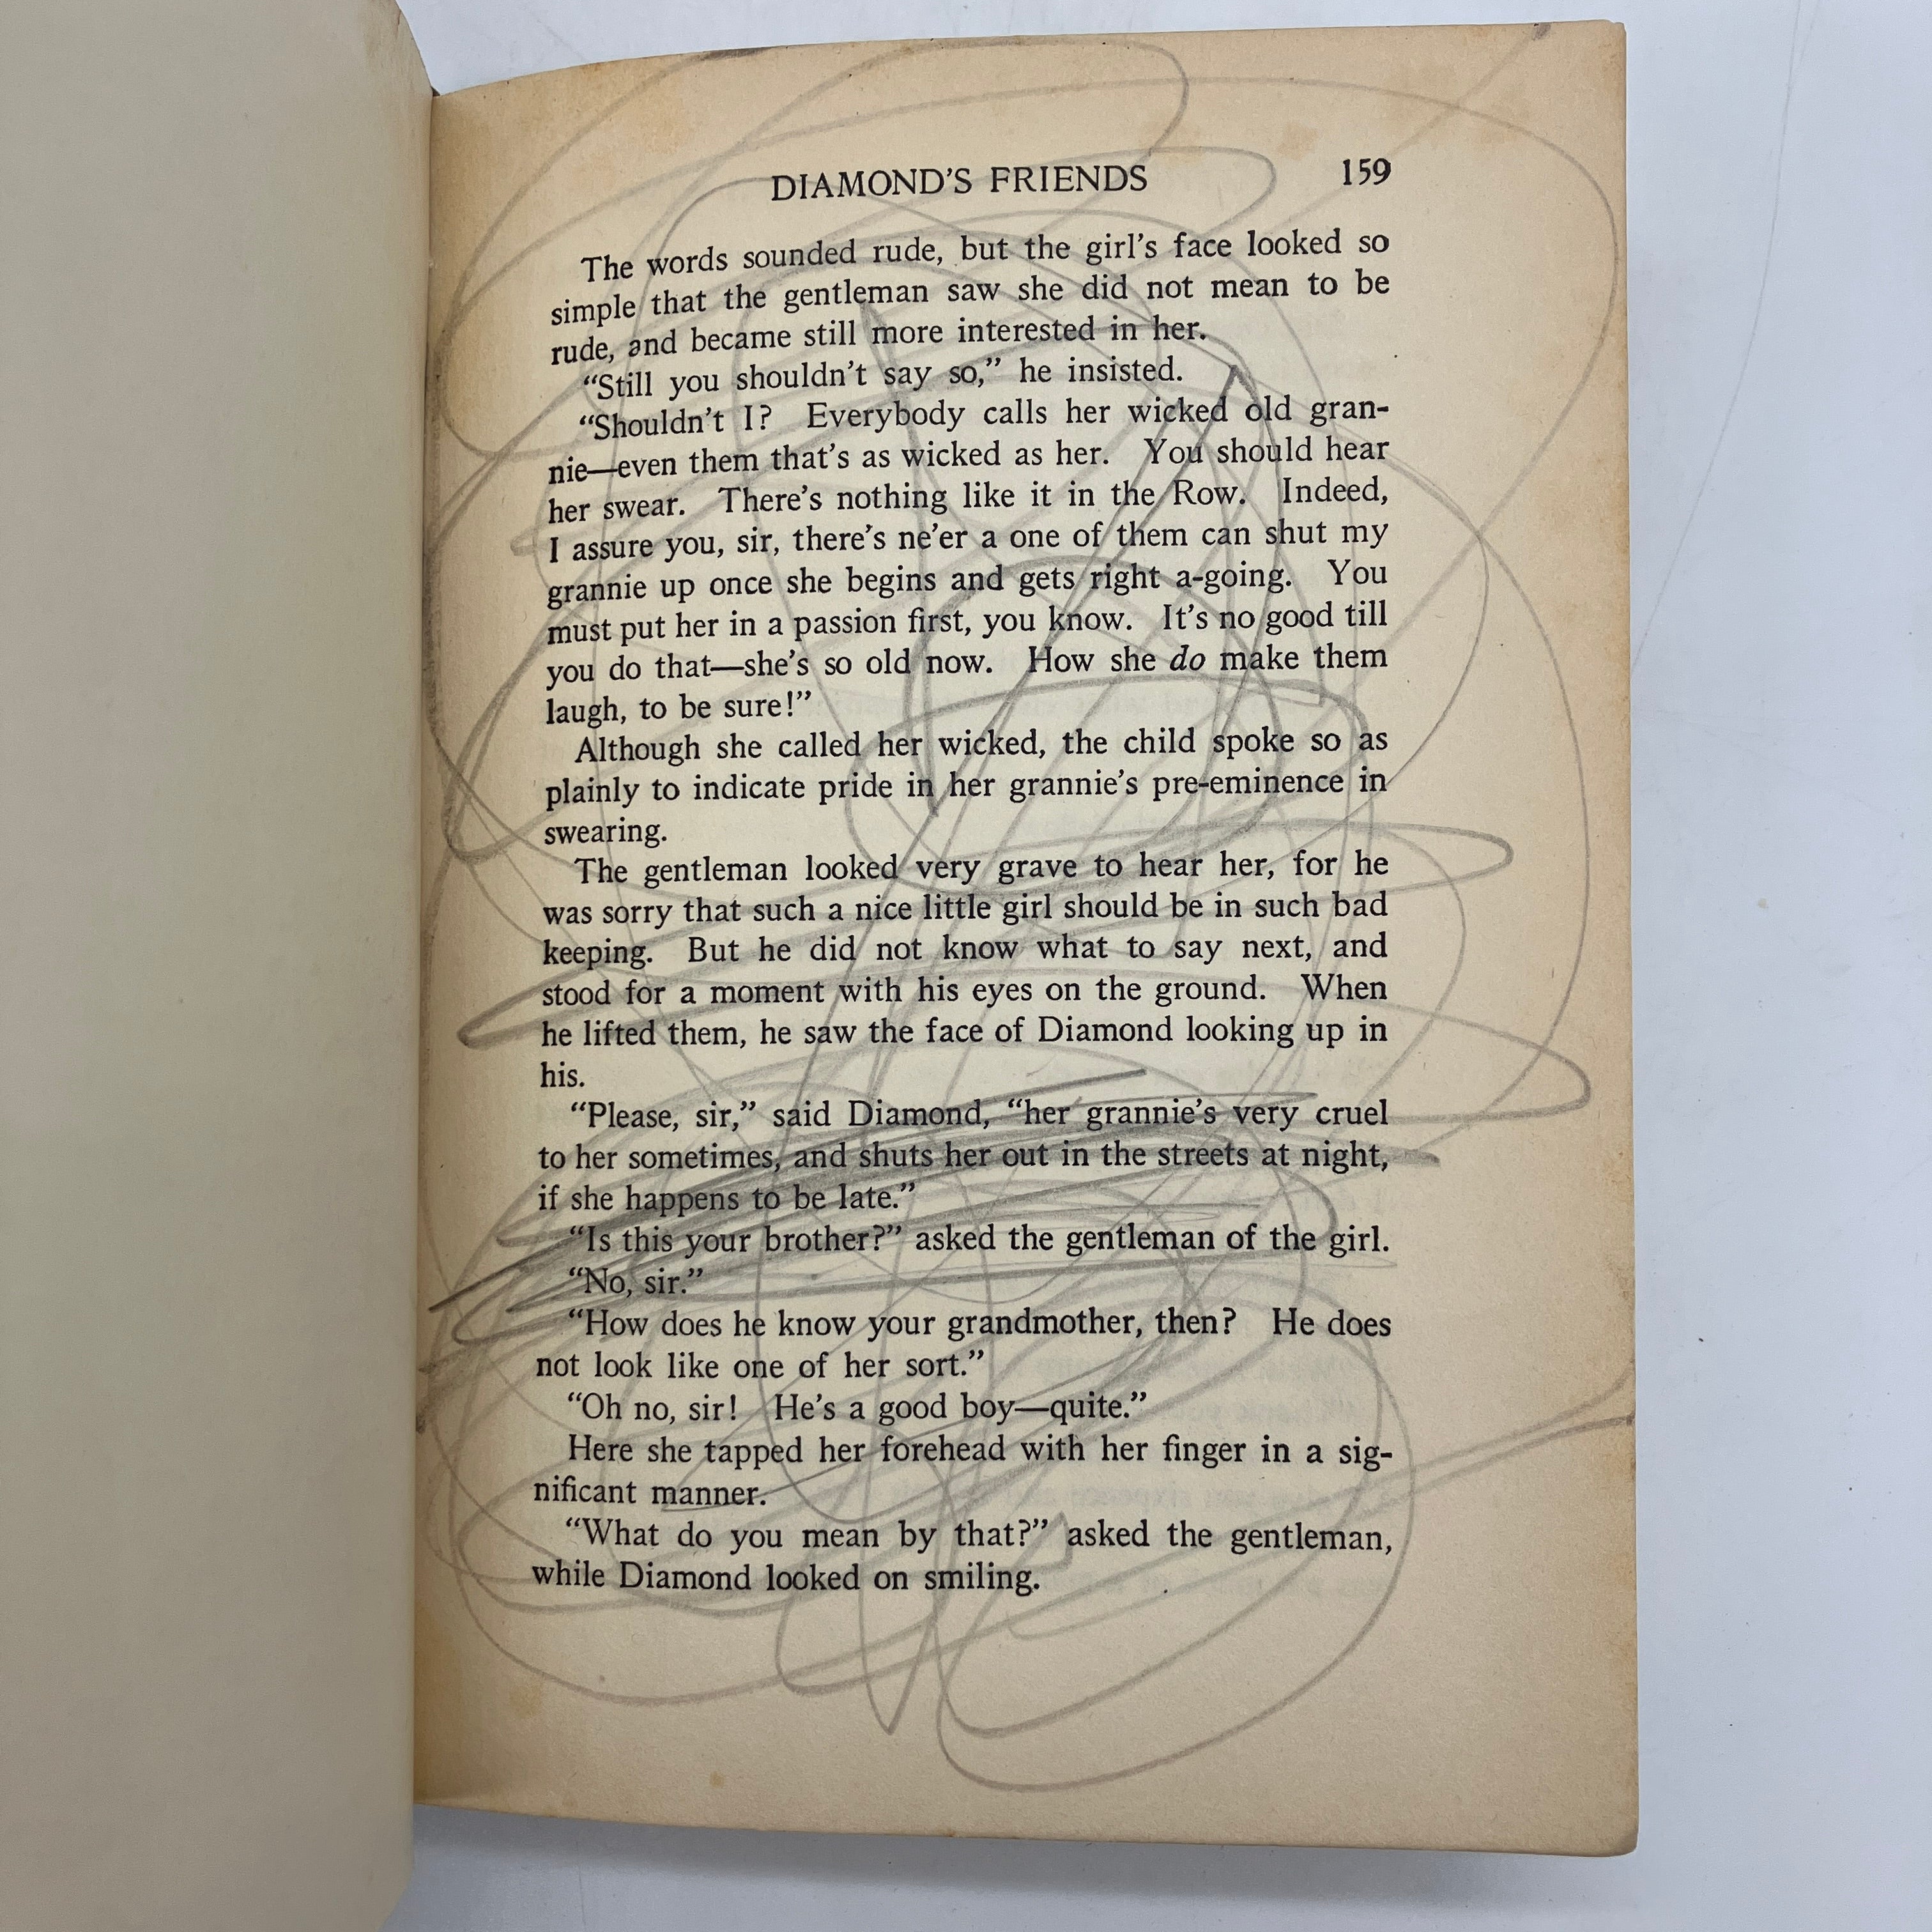 DIAMOND'S FRIENDS 159
The words sounded rude, but the girl's face looked so
simple that the gentleman saw she did not mean to be
rude, and became still more interested in her.
“Still you shouldn't say so,” he insisted.
“Shouldn't I? Everybody calls her wicked old gran-
nie—even them that's as wicked as her. You should hear
her swear. There's nothing like it in the Row. Indeed,
I assure you, sir, there's ne'er a one of them can shut my
grannie up once she begins and gets right a-going. You
must put her in a passion first, you know. It's no good till
you do that—she's so old now. How she do make them
laugh, to be sure!”
Although she called her wicked, the child spoke so as
plainly to indicate pride in her grannie's pre-eminence in
swearing.
The gentleman looked very grave to hear her, for he
was sorry that such a nice little girl should be in such bad
keeping. But he did not know what to say next, and
stood for a moment with his eyes on the ground. When
he lifted them, he saw the face of Diamond looking up in
his.
“Please, sir,” said Diamond, “her grannie's very cruel
to her sometimes, and shuts her out in the streets at night,
if she happens to be late.”
“Is this your brother?” asked the gentleman of the girl.
“No, sir.”
“How does he know your grandmother, then? He does
not look like one of her sort.”
“Oh no, sir! He's a good boy—quite.”
Here she tapped her forehead with her finger in a sig-
nificant manner.
“What do you mean by that?” asked the gentleman,
while Diamond looked on smiling.